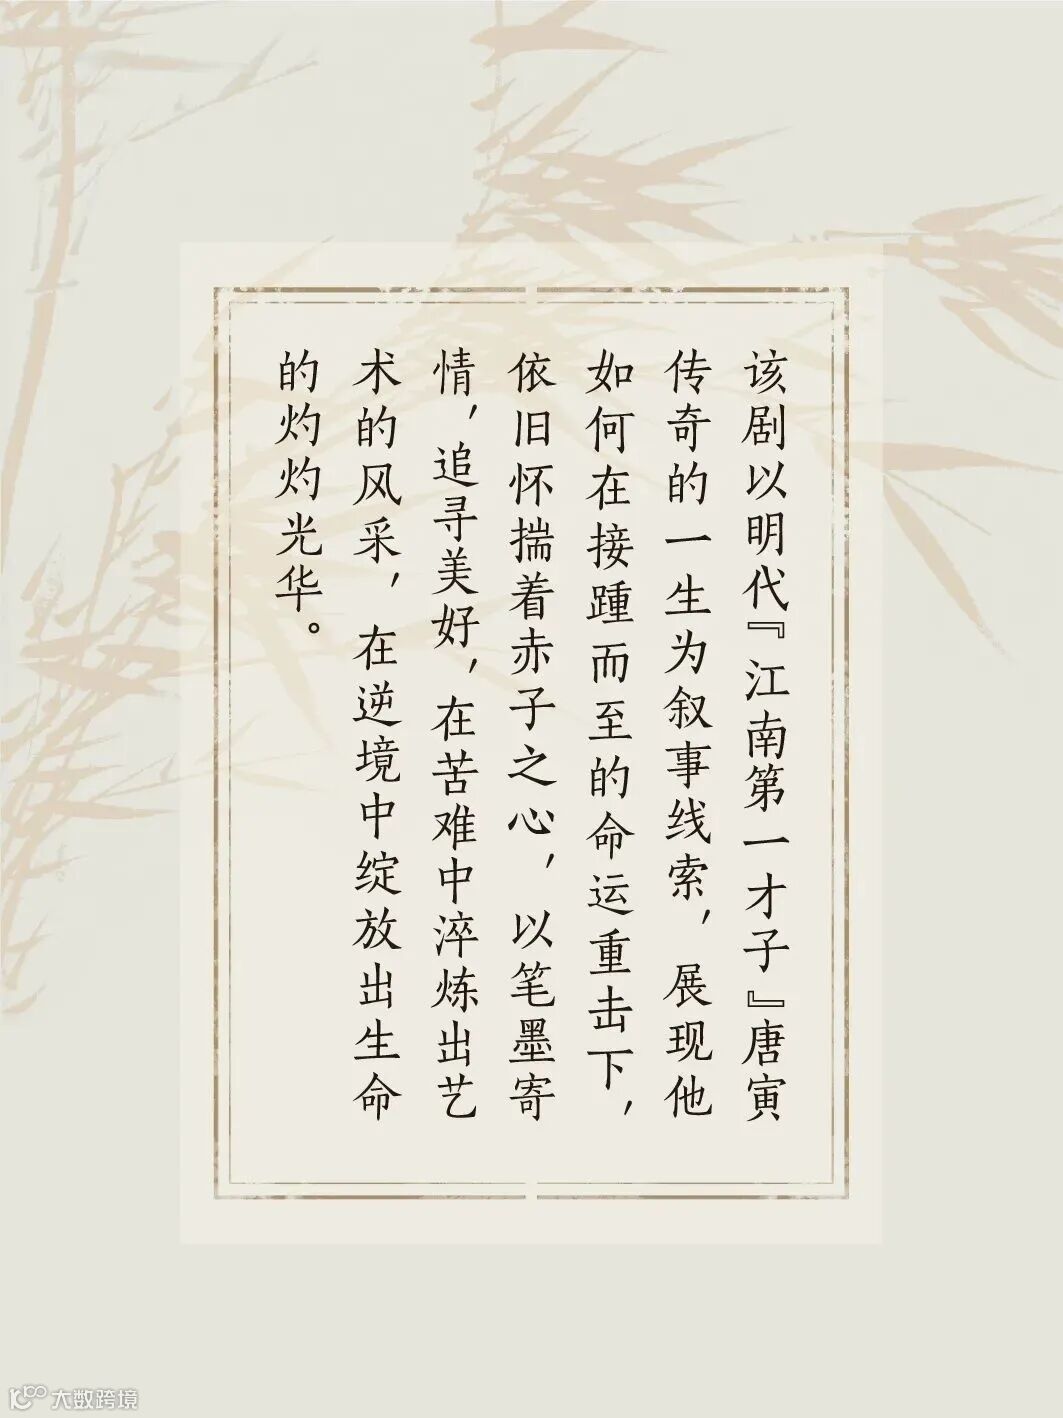 该剧以明代『江南第一才子』唐寅
传奇的一生为叙事线索，展现他
如何在接踵而至的命运重击下，
依旧怀揣着赤子之心，以笔墨寄
情，追寻美好，在苦难中淬炼出艺
术的风采，在逆境中绽放出生命
的灼灼光华。
大数跨境